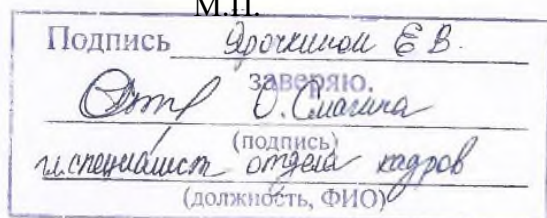 М.П.
Подпись Ярочкиной Е.В.
заверяю.
О. Смагина
(подпись)
гл. специалист отдела кадров
(должность, ФИО)